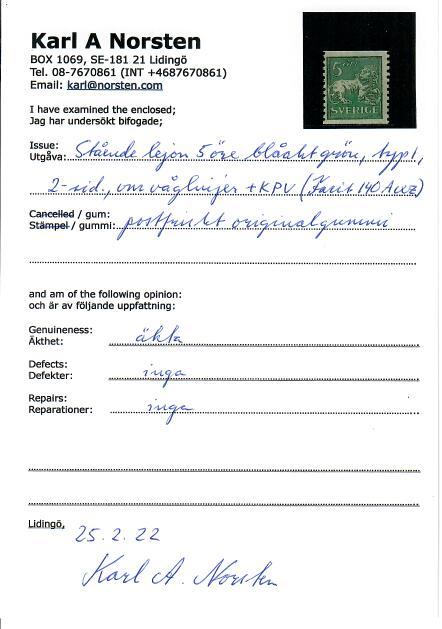 Karl A Norsten
BOX 1069, SE-181 21 Lidingö
Tel. 08-7670861 (INT +4687670861)
Email: karl@norsten.com
5 öre
SVERIGE
I have examined the enclosed;
Jag har undersökt bifogade;
Issue:
Utgåva: Stående lejon 5 öre blåaktgrön, typ I,
2-sid., vm våglinjer + KPV (Facit 140 Acxz)
Cancelled / gum:
Stämpel / gummi: postfriskt originalgummi
and am of the following opinion:
och är av följande uppfattning:
Genuineness:
Äkthet: äkta
Defects:
Defekter: inga
Repairs:
Reparationer: inga
Lidingö, 25.2.22
Karl A. Norsten